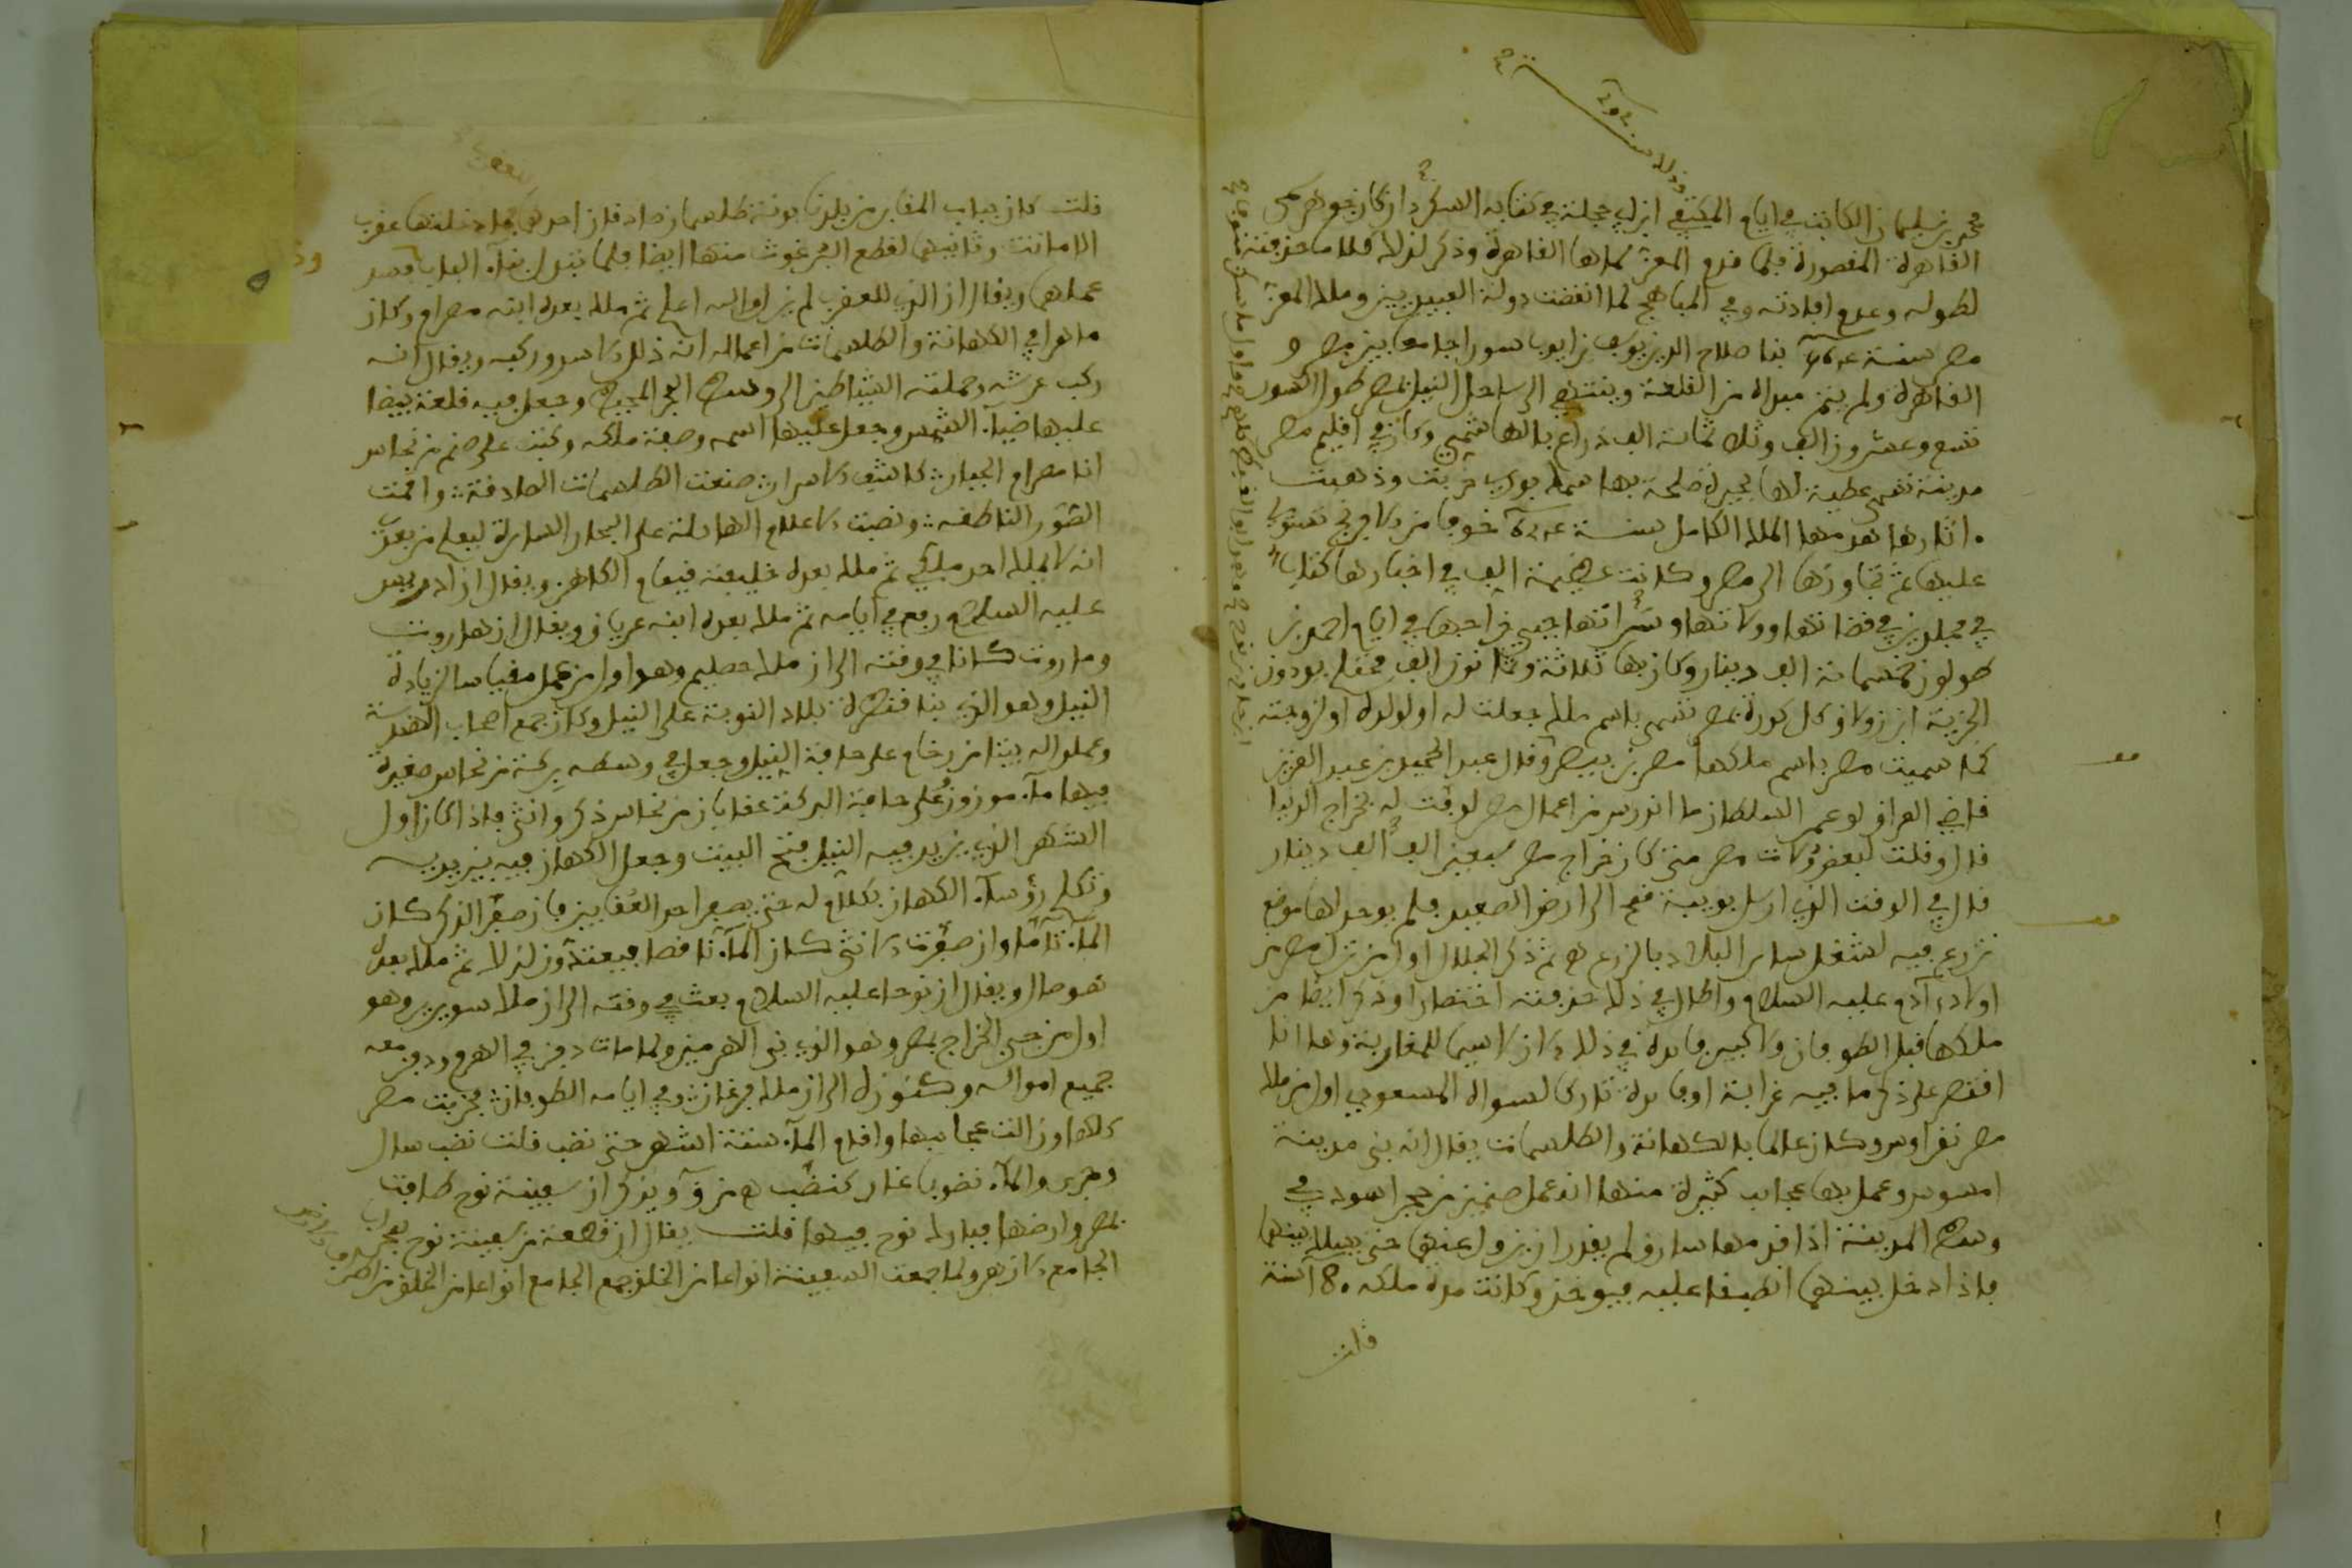 محمد بن سليمان الكاتب في ايام المكتفي ابن ابي حجلة في كتابه السكردان كان جوهر سمى
القاهرة المنصورة فلما قدم المعز سماها القاهرة وذكر لذلك كلاما حذفته
لطوله وعدم افادته وفي المباهج لما انقضت دولة العبيديين وملك المعز
مصر سنة بنا صلاح الدين يوسف بن ايوب سورا جامعا بين مصر و
القاهرة ولم يتم مبداه من القلعة وينتهي الى ساحل النيل بمصر طول السور
تسع وعشرون الف وثلاثمائة الف ذراع بالهاشمي وكان في اقليم مصر
مدينة تسمى عظيمة لها بحيرة مالحة بها سمك بوري خربت وذهبت
اثارها هدمها الملك الكامل سنة خوفا من الافرنج تستولي
عليها ثم تجاوزها الى مصر وكانت عظيمة الف في اخبارها كتاب
في مجلدين في قضاتها وولاتها وسراتها جبي خراجها في ايام احمد بن
طولون خمسمائة الف دينار وكان بها ثلاثة وثمانون الف محتلم يودون
الجزية ابن زولاق كل كورة بمصر تسمى باسم ملك جعلت له او لولده او لزوجته
كما سميت مصر باسم ملكها مصر بن بيصر وقال عبد الحميد بن عبد العزيز
قاضي العراق لو عمر السلطان ما اندرس من اعمال مصر لوفت له بخراج الدنيا
قال وقلت لبعض ولات مصر متى كان خراج مصر سبعين الف الف دينار
قال في الوقت الذي ارسل بويبة قمح الى ارض الصعيد فلم يوجد لها موضع
تزرع فيه لشغل ساير البلاد بالزرع ثم ذكر الجلال اول من نزل مصر من
اولاد آدم عليه السلام واطال في ذلك حذفته اختصارا وذكر ايضا من
ملكها قبل الطوفان ولا كبير فايدة في ذلك الان لاسيما للمغاربة وها انا
اقتصر على ذكر ما فيه غرابة او فايدة قال المسعودي اول من ملك
مصر نقراوس وكان عالما بالكهانة والطلسمات يقال انه بنى مدينة
امسوس وعمل بها عجايب كثيرة منها انه عمل صنمين من حجر اسود في
وسط المدينة اذا قدمها سارق لم يقدر ان يزول عنهما حتى يسلك بينهما
فاذا دخل بينهما انطبقا عليه فيوخذ وكانت مدة ملكه 180 سنة
قلت
قلت كان بباب المقابر من بلدنا بونة طلسمان
الا ماتت وثانيهما لقطع البرغوث منها ايضا فلما تبدل بناء الباب فسد
عملهما ويقال ان الذي للعقرب لم يزل والله اعلم ثم ملك بعده ابنه مصرام وكان
ماهرا في الكهانة والطلسمات من اعماله انه ذلل الاسد وركبه ويقال انه
ركب عرشه وحملته الشياطين الى وسط البحر المحيط وجعل فيه قلعة بيضا
عليها ضياء الشمس وجعل عليها اسمه وصفة ملكه وكتب على صنم من نحاس
انا مصرام الجبار كاشف الاسرار صنعت الطلسمات الصادقة واقمت
الصور الناطقة ونصبت الاعلام الهائلة على البحار السايرة ليعلم من بعدي
انه لا يملك احد ملكي ثم ملك بعده خليفته عيقام الكاهن ويقال ان ادريس
عليه السلام رفع في ايامه ثم ملك بعده ابنه عرياق ويقال ان هاروت
وماروت كانا في وقته الى ان ملك حصليم وهو اول من عمل مقياسا لزيادة
النيل وهو الذي بنا قنطرة بلاد النوبة على النيل وكان جمع اصحاب الهندسة
وعملوا له بيتا من رخام على حافة النيل وجعل في وسطه بركة من نحاس صغيرة
فيها ماء موزون على حافة البركة عقابان من نحاس ذكر وانثى فاذا كان اول
الشهر الذي يزيد فيه النيل فتح البيت وجعل الكهان فيه بين يديه
وتكلم رؤساء الكهان بكلام له حتى يصفر احد العقابين فان صفر الذكر كان
الماء تاما وان صفرت الانثى كان الماء ناقصا فيعتدون لذلك ثم ملك بعده
هوصال ويقال ان نوحا عليه السلام بعث في وقته الى ان ملك سوريد وهو
اول من جبى الخراج بمصر وهو الذي بنى الهرمين ولما مات دفن في الهرم ودفن معه
جميع امواله وكنوزه الى ان ملك فرغان وفي ايامه الطوفان فخربت مصر
كلها وزالت عجايبها واقام الماء ستة اشهر حتى نضب قلت نضب سال
وجرى والماء نضوبا غار كنضب ويذكر ان سفينة نوح طافت
بمصر وارضها فبارك نوح فيها قلت يقال ان قطعة من سفينة نوح بباب
الجامع الازهر ولما جمعت السفينة انواعا من الخلق جمع الجامع انواعا من الخلق من